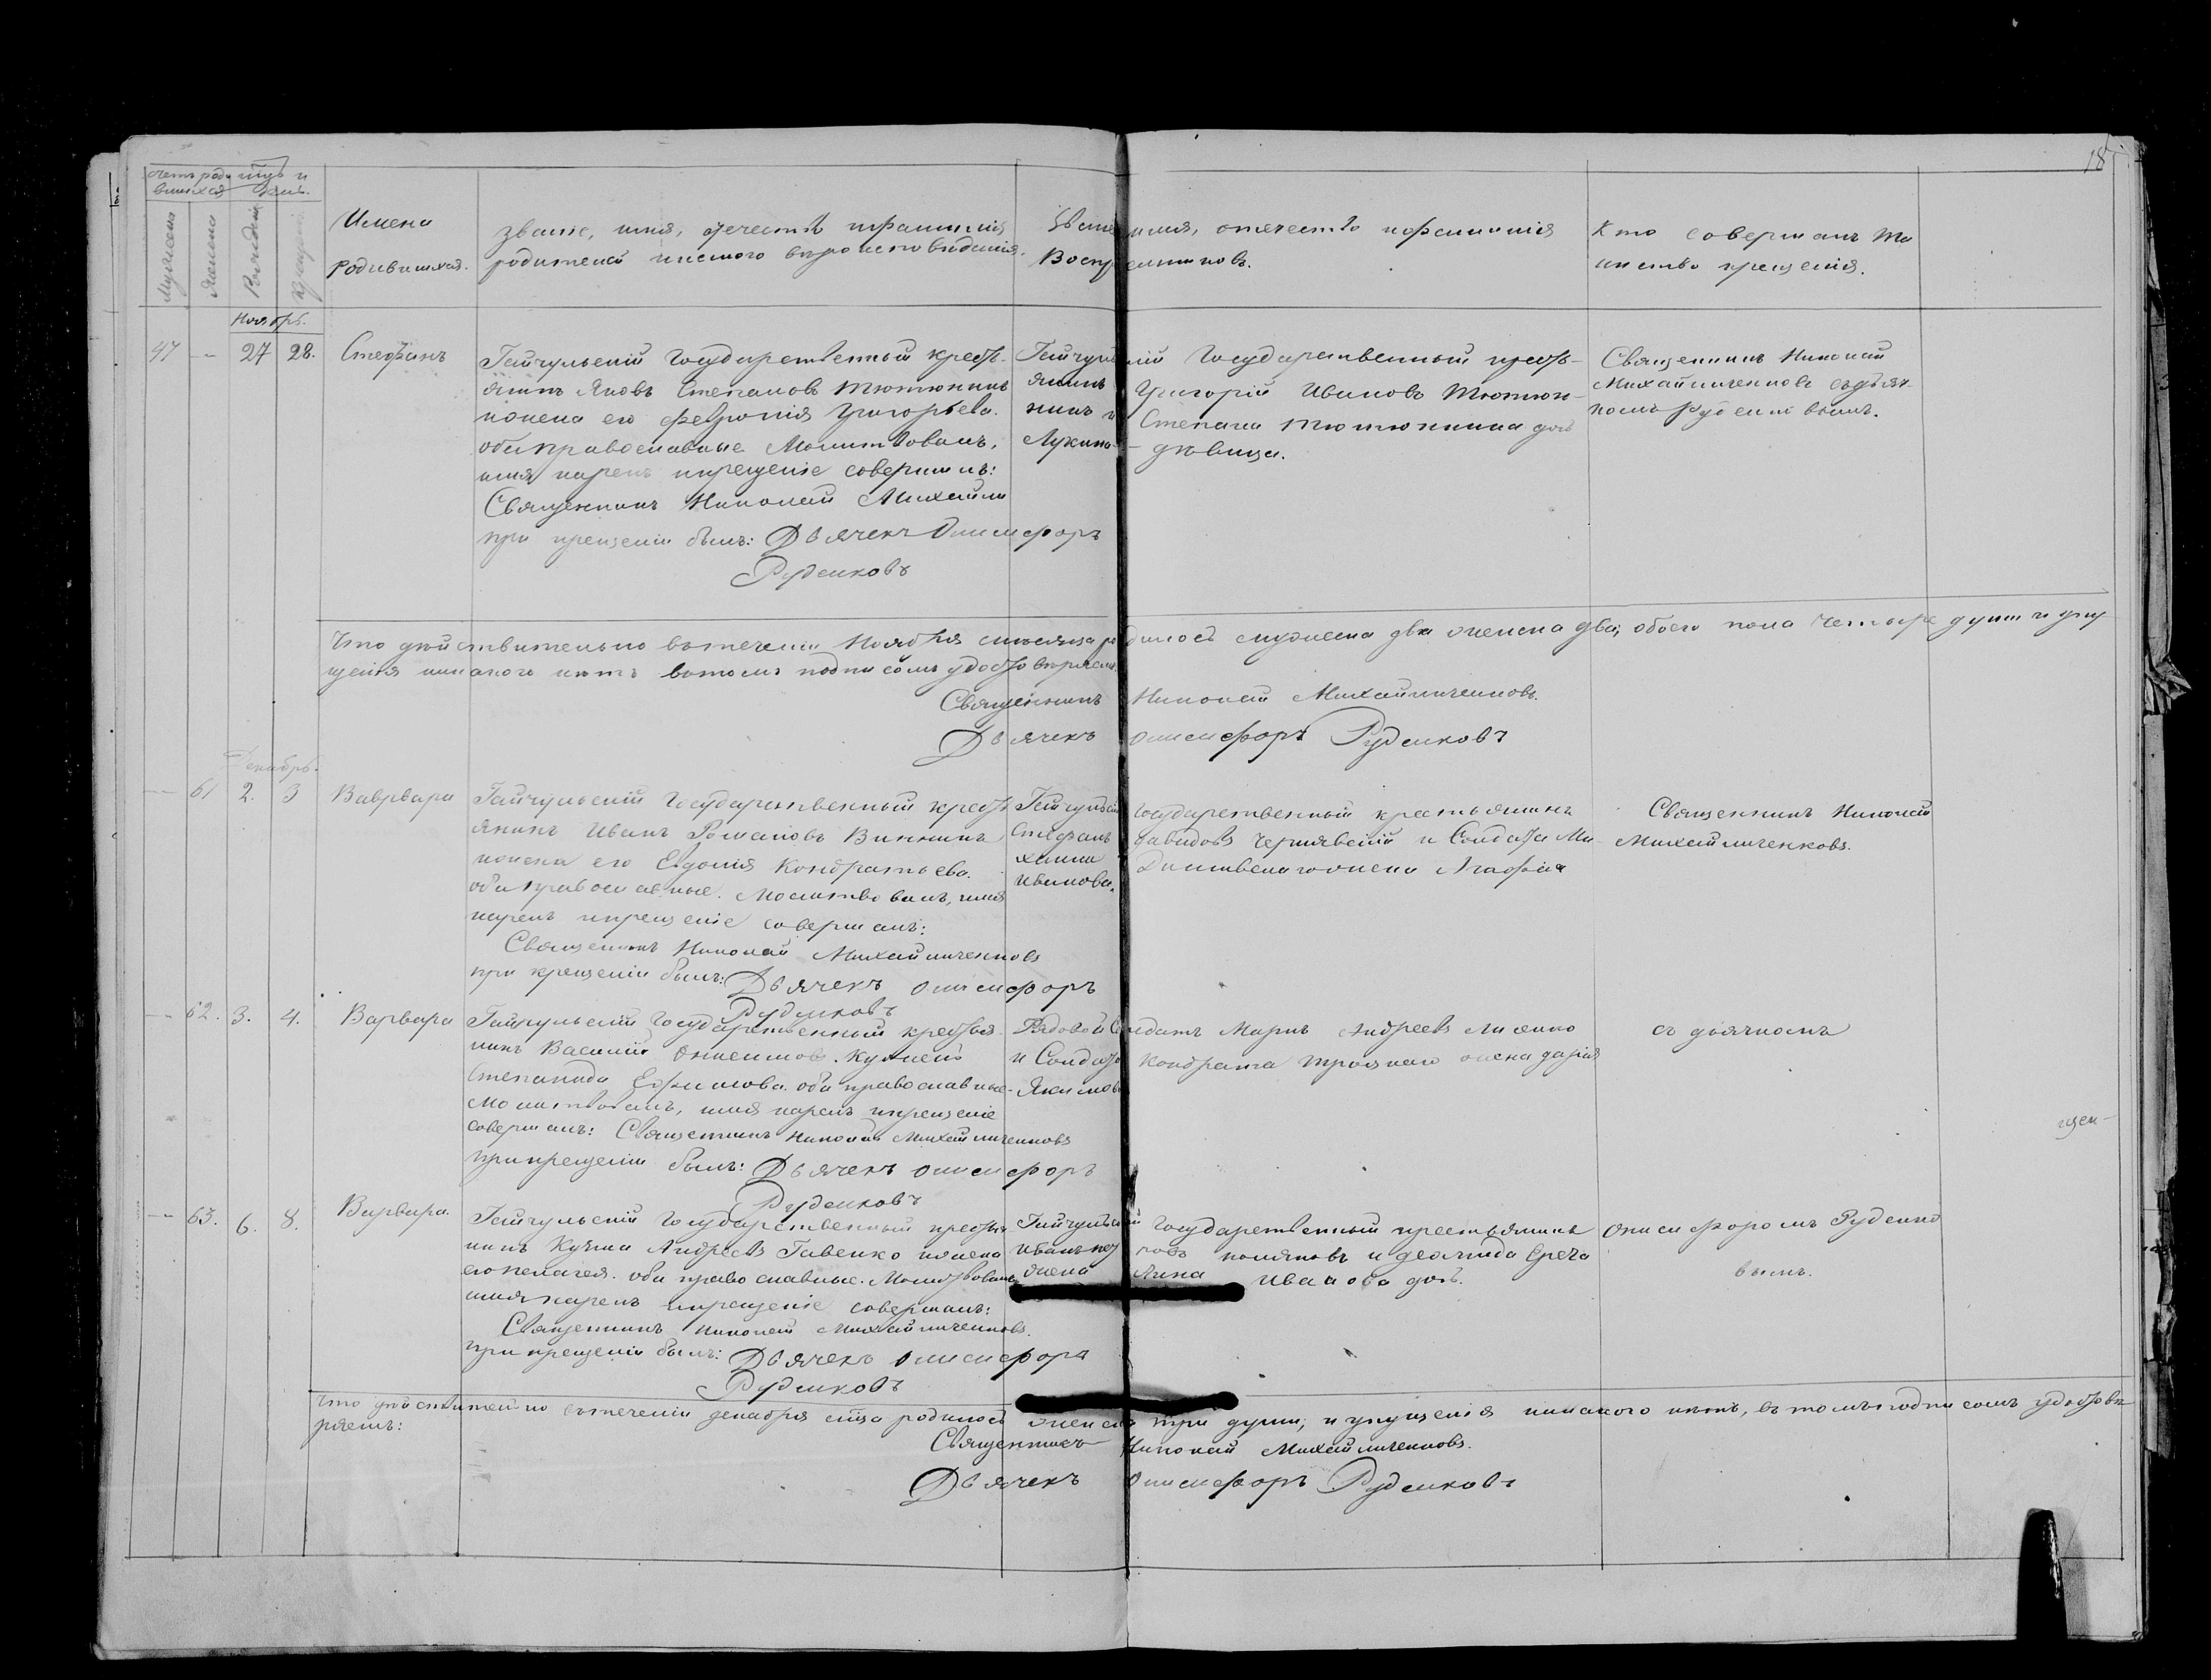 18
Счетъ роди мцъ и
вшихся днь.
Мужеска
Женска
Рожденія
Крещенія
Имена
Родившихся.
званіе, имя, отчество и фамилія
родителей и какого вѣроисповѣданія.
Званіе имя, отчество и фамилія
Воспріемниковъ.
Кто совершалъ та
инство крещенія.
Ноябрь.
47 -- 27 28. Стефанъ
Гайчульскій Государственный кресть-
янинъ Яковъ Степановъ Тютюнникъ
и жена его Февронія Григорьева.
оба православные Молитвовалъ,
имя нарекъ и крещеніе совершилъ:
Священникъ Николай Михайли
при крещеніи былъ: Дьячекъ Онисифоръ
Руденковъ
Гайчульскій Государственный кресть-
янинъ Григорій Ивановъ Тютюн-
никъ и Степана Тютюнника дочь
Лукина- дѣвица.
Священникъ Николай
Михайличенковъ съ дьяч-
комъ Руденковымъ.
Что дѣйствительно въ теченіи Ноября мѣсяца родилось мужеска два женска два, обоего пола четыре души и упу
щенія никакого нѣтъ въ томъ подписомъ удостовѣряемъ
Священникъ Николай Михайличенковъ.
Дьячекъ Онисифоръ Руденковъ
Декабрь.
-- 61 2. 3 Вавrвара
Гайчульскій Государственный кресть
янинъ Иванъ Романовъ Винникъ
и жена его Евдокія Кондратьева.
оба православные. Молитвовалъ, имя
нарекъ и крещеніе совершалъ:
Священникъ Николай Михайличенковъ
при крещеніи былъ: Дьячекъ Онисифоръ
Руденковъ
Гайчульскій Государственный крестьянинъ
Стефанъ Давидовъ Чернявскій и Солдата Ми-
хаила жена Агафія
Иванова.
Священникъ Николай
Михайличенковъ.
-- 62. 3. 4. Варвара
Гайчульскій Государственный крестья
нинъ Василій Онисимовъ
Степанида Ефимова. оба православные-
Молитвовалъ, имя нарекъ и крещеніе
совершалъ: Священникъ Николай Михайличенковъ
при крещеніи былъ: Дьячекъ Онисифоръ
Руденковъ
Рядовой Солдатъ Маркъ Андреевъ Лисенко
и Солдата Кондрата жена Дарія
Якимова
съ дьячкомъ
щен-
-- 63. 6. 8. Варвара.
Гайчульскій Государственный крестья
нинъ Кузма Андреевъ Гавенко и жена
его Пелагея. оба православные. Молитвовалъ
имя нарекъ и крещеніе совершалъ:
Священникъ Николай Михайличенковъ.
при крещеніи былъ: Дьячекъ Онисифоръ
Руденковъ
Гайчульскій Государственный крестьянинъ
Иванъ
жена Анна Иванова дочь.
Онисифоромъ Руденко
вымъ.
Что дѣйствительно въ теченіи декабря м-ца родилось женска три души, и упущенія никакого нѣтъ, въ томъ подписомъ удостовѣ
ряемъ:
Священникъ Николай Михайличенковъ.
Дьячекъ Онисифоръ Руденковъ